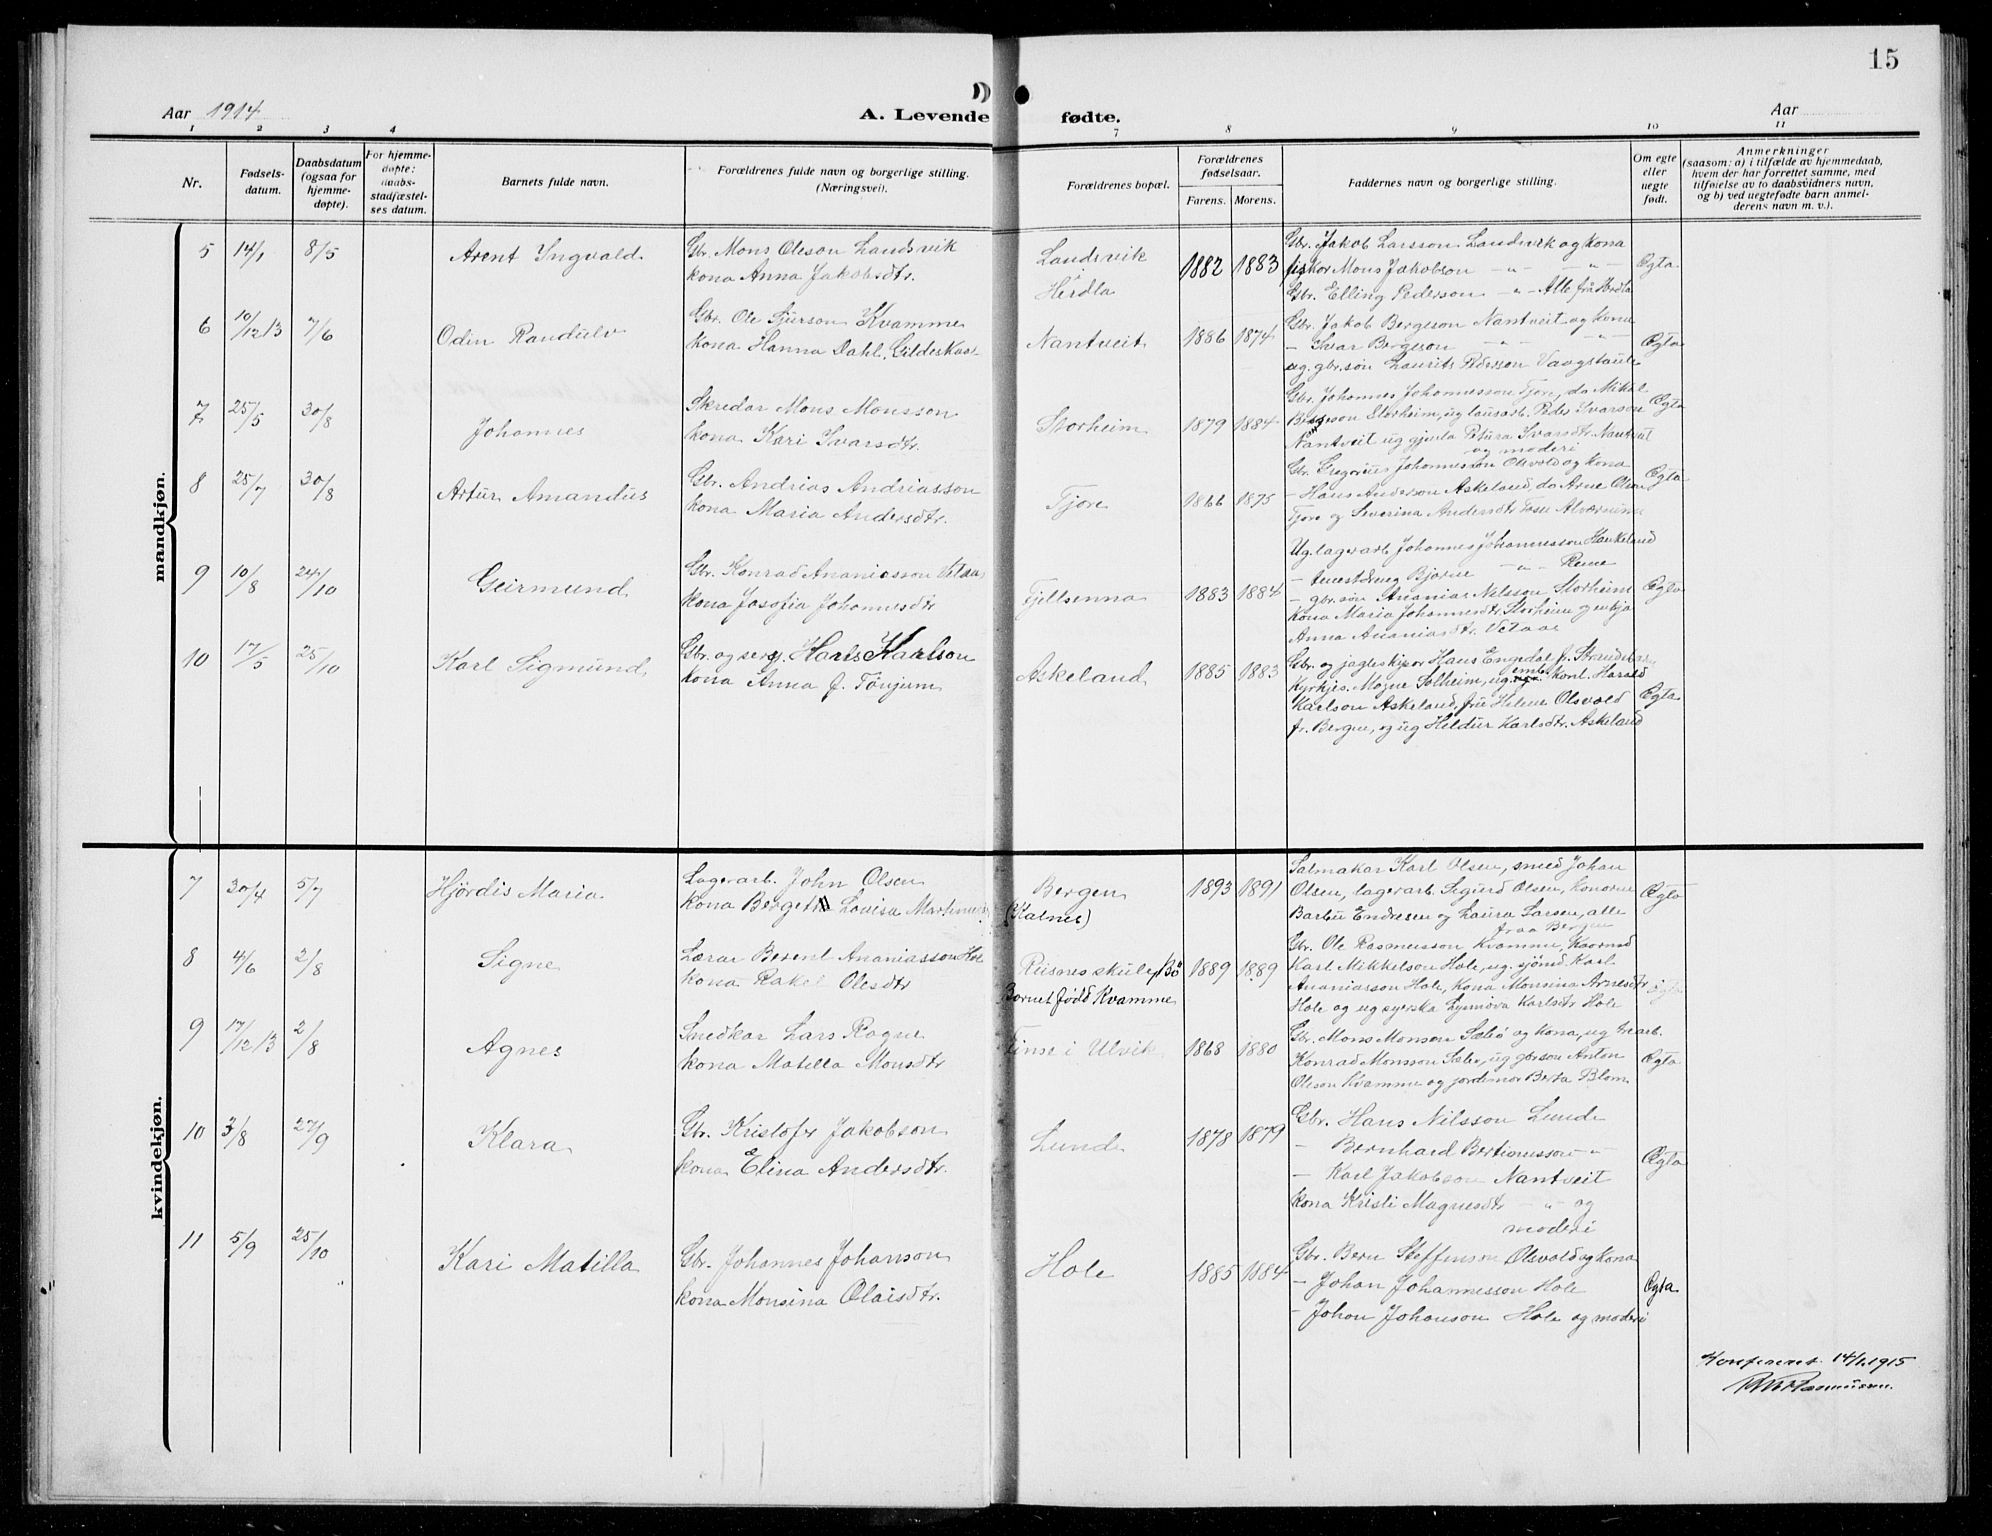 15
Aar 1914
A. Levende fødte.
Aar
1 2 3 4 7 8 9 10 11
Nr.
Fødsels-
datum.
Daabsdatum
(ogsaa for
hjemme-
døpte).
For hjemme-
døpte:
daabs-
stadfæstel-
ses datum.
Barnets fulde navn.
Forældrenes fulde navn og borgerlige stilling.
(Næringsvei).
Forældrenes bopæl.
Forældrenes
fødselsaar.
Farens. Morens.
Faddernes navn og borgerlige stilling.
Om egte
eller
uegte
født.
Anmerkninger
(saasom: a) i tilfælde av hjemmedaab,
hvem der har forrettet samme, med
tilføielse av to daabsvidners navn,
og b) ved uegtefødte barn anmel-
derens navn m. v.).
mandkjøn.
5 14/1 8/5
Arent Ingvald
Gbr. Mons Oleson Landsvik
kona Anna Jakobsdtr.
Landsvik
i
Herdla
1882 1883
Gbr. Jakob Larsson Landsvik og kona
fiskor Mons Jakobson — „ — — „ —
Gbr. Elling Pederson — „ — Alle frå Herdla
Egta
6 10/12 13 7/6
Odin Randulv
Gbr. Ole Sjurson Kvamme
kona Hanna Dahl, Gildeskaal
Nantveit
1886 1874
Gbr. Jakob Bergeson Nantveit og kona
— Ivar Bergeson — „ — — „ —
ug. gbr. søn Laurits Pederson Vaagstaule
Egta
7 25/5 30/8
Johannes
Skredar Mons Monsson
kona Kari Ivarsdtr.
Storheim
1879 1884
Gbr. Johannes Johannesson Tjore, do Mikal
Bergeson Storheim, ug lausarb. Peder Ivarson
Nantveit ug gjenta Petura Ivarsdtr. Nantveit
og moderi
Egta
8 25/7 30/8
Artur Amandus
Gbr. Andrias Andriasson
kona Maria Andersdtr.
Tjore
1866 1875
Gbr. Gregorius Johannesson Olsvold og kona
— Hans Anderson Askeland, do Arne Olson
Tjore og Severina Andersdtr
Egta
9 10/8 24/10
Geirmund
Gbr. Konrad Ananiasson Vetaas
kona Josefia Johannesdtr
Fjellsenna
1883 1884
Ug. lagerarb. Johannes Johannesson Haukeland
— tenestdreng Bjarne — „ — Reme
— gbr. søn Ananias Nilsson, Storheim
kona Maria Johannesdtr. Storheim og enkja
Anna Ananiasdtr. Vetaas
Egta
10 17/5 25/10
Karl Sigmund
Gbr. og serg. Hans Karlson
kona Anna f. Tønjum
Askeland
1885 1883
Gbr. og jagteskipor Hans Engedal fr. Strandebarm
Kyrkjes. Mogne Solheim, ug. kont. Harald
Karlson Askeland, frü Helene Olsvold
fr. Bergen, og ug Hildur Karlsdtr. Askeland
Egta
kvindekjøn.
7 30/4 5/7
Hjørdis Maria
Lagerarb. John Olsen
kona Bergette Lovisa
Bergen
(Kalnes)
1893 1891
Salmakar Karl Olsen, smed Johan
Olsen, lagerarb. Sigurd Olsen, konorne
Barbu Endresen og Laura Larsen, alle
fraa Bergen
Egta
8 4/6 2/8
Signe
Lærar Berent Ananiasson Hole
kona Rakel Olesdtr
Riisnes skule, Bö
Bornet fødd Kvamme
1889 1889
Gbr. Ole Rasmusson Kvamme,
Karl Mikkelson Hole, ug. sjömd. Karl
Ananiasson Hole, kona Monsina Arnesdtr
Hole og ug syerska Lynnöva Karlsdtr Hole
Egta
9 17/12 13 2/8
Agnes
Snedkar Lars Rogne
kona Matilla Monsdtr
Finse i Ulvik
1868 1880
Gbr. Mons Monson Sæbö og kona, ug trearb.
Konrad Monsson Sæbö, ug gbrson Anton
Oleson Kvamme og jordmor Berta Blom
Egta
10 3/8 27/9
Klara
Gbr. Kristofer Jakobson
kona Elina Andersdtr.
Lunde
1878 1879
Gbr. Hans Nilsson Lunde
— Bernhard Bertinusson — „ —
— Karl Jakobson Nantveit
kona Kristi Magnesdtr — „ — og
moderi
Egta
11 5/9 25/10
Kari Matilla
Gbr. Johannes Johanson
kona Monsina Olaisdtr.
Hole
1885 1884
Gbr. Bern Steffenson Olsvold og kona
— Johan Johannesson Hole
— Johan Johanson Hole og moderi
Egta
Konfereret 14/1. 1915
Rasmussen.